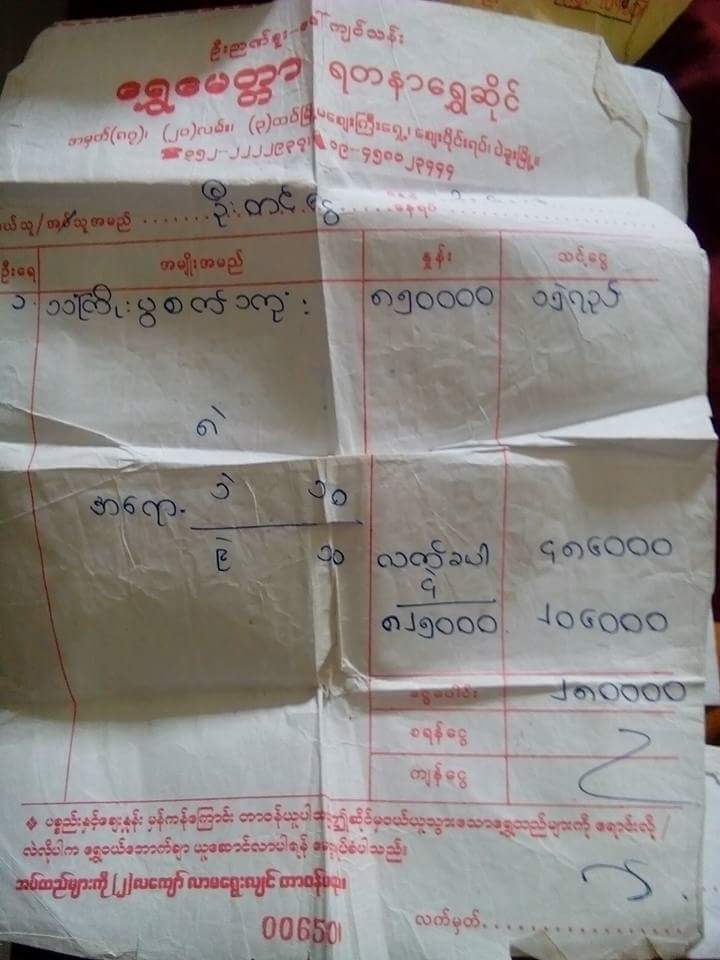 ဦးဉာဏ်စူး-ဒေါ်ကျင်သန်း
ရွှေမေတ္တာ ရတနာရွှေဆိုင်
အမှတ်(၈၇)၊ (၂၀)လမ်း၊ (၃)ထပ်ရုံ မဈေးကြီးရှေ့၊ ဈေးပိုင်းရပ်၊ ပဲခူးမြို့။
☎၀၅၂-၂၂၂၂၉၃၃၊ ၀၉-၄၅၀၀၂၃၅၅၅
ယ်သူ/အပ်သူအမည် ဦးတင်ငွေ နေရပ်
ဦးရေ အမျိုးအမည် နှုန်း သင့်ငွေ
၁. ၁၁ကြိုး ပွစက် ၁ကုံး ၈၅၀၀၀၀
၈
အရော. ၁ ၁၀
၉ ၁၀ လက်ခပါ ၄၈၆၀၀၀
၄
၈၂၅၀၀၀ ၂၀၆၀၀၀
ငွေပေါင်း ၂၈၀၀၀၀
စရန်ငွေ
ကျန်ငွေ
❖ ပစ္စည်းနှင့်ဈေးနှုန်း မှန်ကန်ကြောင်း တာဝန်ယူပါသည်။ ဤဆိုင်မှဝယ်ယူသွားသောရွှေထည်များကို ရောင်းလို /
လဲလိုပါက ရွှေဝယ်ဘောက်ချာ ယူဆောင်လာပါရန် မေတ္တာရပ်ခံပါသည်။
အပ်ထည်များကို (၂)လကျော် လာမရွေးလျှင် တာဝန်မယူ။
00650
လက်မှတ်